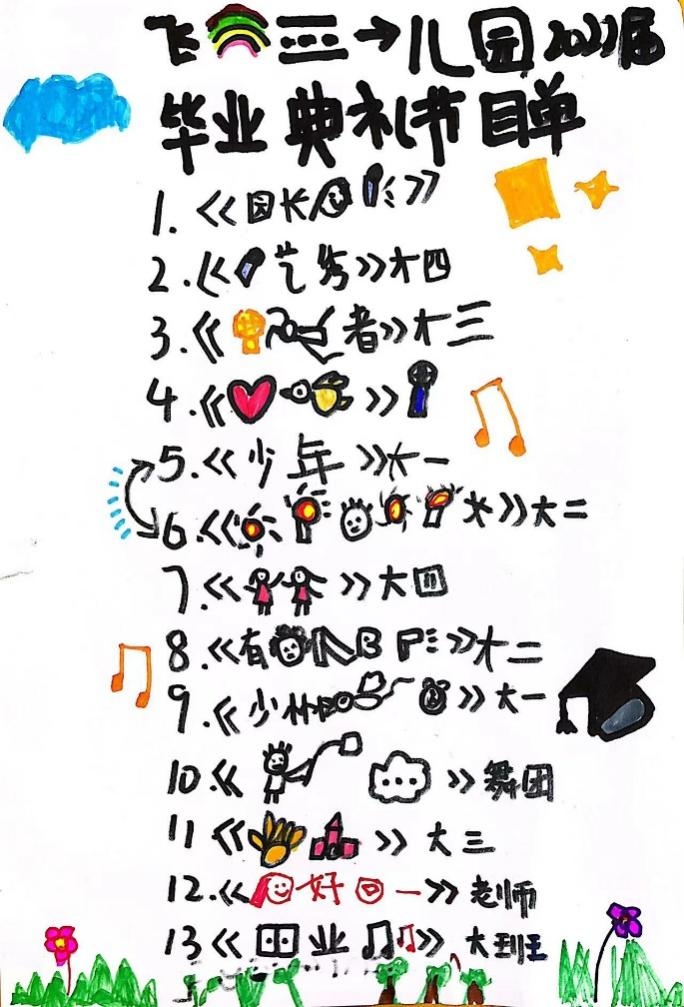 飞 三 儿园2021届
毕业典礼节目单
1.《园长 》
2.《 艺秀》大四
3.《 者》大三
4.《 》
5.《少年》大一
6.《 米》大二
7.《 》大四
8.《有 》大二
9.《少林 》大一
10.《 》舞团
11《 》大三
12.《 好回一》老师
13《 业 》大班